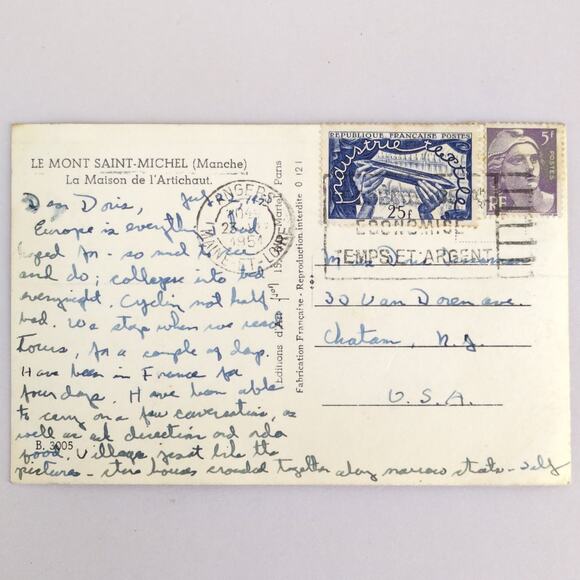 LE MONT SAINT-MICHEL (Manche)
La Maison de l'Artichaut.
Dear Doris
July 22, 1951
Europe is everything I had
hoped for - so much to see
and do; collapse into bed
everynight. Cycling not half
bad. We stop when we reach
Tours, for a couple of days.
Have been in France for
four days. Have been able
to carry on a few conversations, as
well as ask direction and order
food. Villages just like the
pictures - stone houses crowded together along narrow streets -
B. 3005
Éditions d'Art
Martel, Paris
Fabrication Française - Reproduction interdite 0 121
ANGERS
23
1951
MAINE ET LOIRE
REPUBLIQUE FRANÇAISE POSTES
industrie textile
25f
5f
POSTES
ECONOMISE
TEMPS ET ARGENT
Miss Doris
30 Van Doren ave.
Chatam, N.J.
U.S.A.